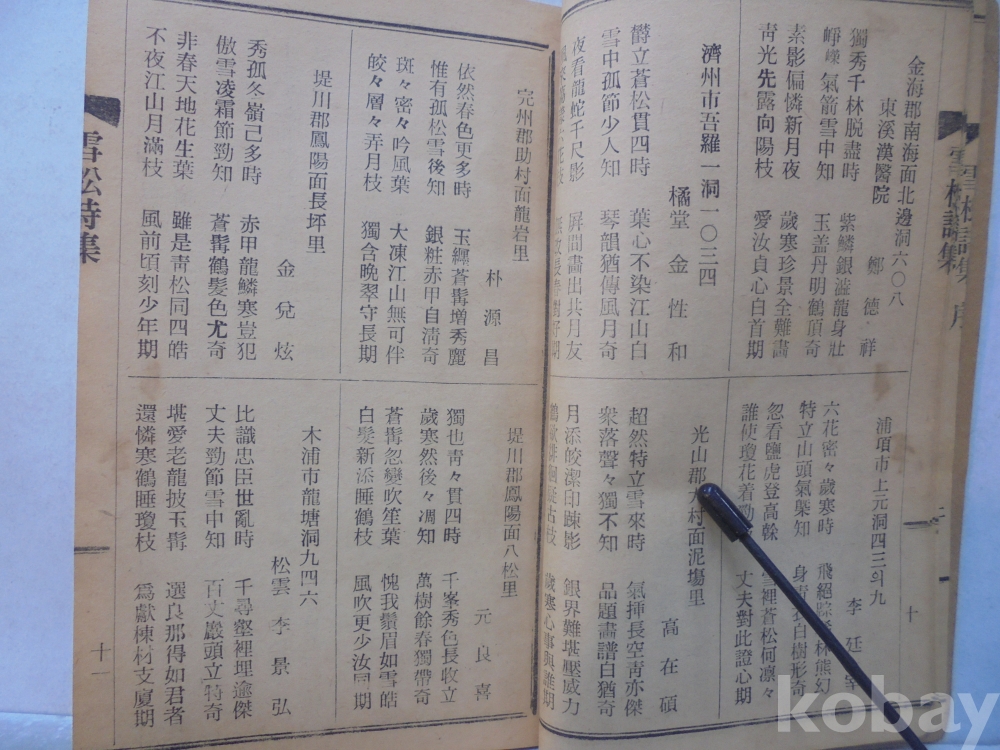 金海郡南海面北邊洞六〇八
東溪漢醫院 鄭德祥
獨秀千林脫盡時 紫鱗銀滋龍身壯
崢嶸氣節雪中知 玉盖丹明鶴頂奇
素影偏憐新月夜 歲寒珍景全難畵
靑光先露向陽枝 愛汝貞心白首期
濟州市吾羅一洞一〇三四
橘堂 金性和
欝立蒼松貫四時 葉心不染江山白
雪中孤節少人知 琴韻猶傳風月奇
夜看龍蛇千尺影 屛間畵出共月友
浦項市上元洞四三의九
李廷
六花密々歲寒時 飛絕 林熊幻
特立山頭氣槩知 身靑 白樹形奇
忽看鹽虎登高榦 雪裡蒼松何凛々
誰使瓊花着 丈夫對此證心期
光山郡 村面泥塲里
高在碩
超然特立雪來時 氣挿長空靑亦傑
衆落聲々獨不知 品題畵譜白猶奇
月添皎潔印踈影 銀界難堪壓威力
歲寒心事與誰期
十
雪松詩集
完州郡助村面龍岩里
朴源昌
依然春色更多時 玉纙蒼髯增秀麗
惟有孤松雪後知 銀粧赤甲自淸奇
斑々密々吟風葉 大凍江山無可伴
皎々層々弄月枝 獨含晩翠守長期
堤川郡鳳陽面長坪里
金兌炫
秀孤冬嶺己多時 赤甲龍鱗寒豈犯
傲雪凌霜節勁知 蒼髯鶴髮色尤奇
非春天地花生葉 雖是靑松同四皓
不夜江山月滿枝 風前頃刻少年期
堤川郡鳳陽面八松里
元良喜
獨也靑々貫四時 千峯秀色長收立
歲寒然後々凋知 萬樹餘春獨帶奇
蒼髯忽變吹笙葉 愧我鬢眉如雪皓
白髮新添睡鶴枝 風吹更少汝同期
木浦市龍塘洞九四六
松雲 李景弘
比識忠臣世亂時 千尋壑裡埋遼傑
丈夫勁節雪中知 百丈巖頭立特奇
堪愛老龍披玉髯 選良那得如君者
還憐寒鶴睡瓊枝 爲獻棟材支厦期
雪松詩集
十一
kobay